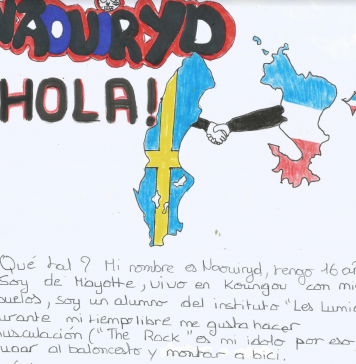 NAOUIRYD
HOLA!
Qué tal? Mi nombre es Naouiryd, tengo 16 añ
Soy de Mayotte, vivo en Koungou con mi
buelos, soy un alumno del instituto "Les Lumiè
urante mi tiempo libre me gusta hacer
usculación ("The Rock" es mi idolo por eso
ugar al baloncesto y montar a bici.